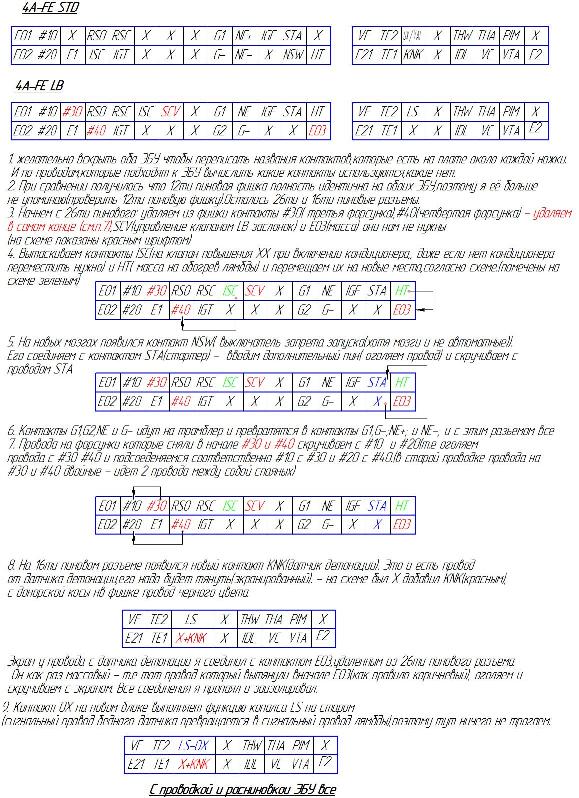 4A-FE STD
E01 #10 X RSO RSC X X X G1 NE+ IGF STA X VF TE2 X THW THA PIM X
E02 #20 E1 ISC IGT X X X G- NE- X NSW HT E21 TE1 KNK X IDL VC VTA E2
4A-FE LB
E01 #10 #30 RSO RSC ISC SCV X G1 NE IGF STA HT VF TE2 LS X THW THA PIM X
E02 #20 E1 #40 IGT X X X G2 G- X X E03 E21 TE1 X X IDL VC VTA E2
1. желательно вскрыть оба ЭБУ чтобы переписать названия контактов,которые есть на плате около каждой ножки.
И по проводам,которые подходят к ЭБУ вычислить какие контакты используются,какие нет.
2. При сравнении получилось что 12ти пиновая фишка полность идентична на обоих ЭБУ,поэтому я её больше
не упоминаю(проверить 12ти пиновую фишку).Остались 26ти и 16ти пиновые разъемы.
3. Начнем с 26ти пинового: удаляем из фишки контакты #30( третья форсунка),#40(четвертая форсунка) - удаляем
в самом конце (см.п.7),SCV(управление клапаном LB заслонок) и E03(масса) они нам не нужны
(на схеме показаны красным шрифтом)
4. Вытаскиваем контакты ISC(на клапан повышения ХХ при включении кондиционера, даже если нет кондиционера
переместить нужно) и HT( масса на обогрев лямбды) и перемещаем их на новые места,согласно схеме.(помечены на
схеме зеленым)
E01 #10 #30 RSO RSC ISC SCV X G1 NE IGF STA HT
E02 #20 E1 #40 IGT X X X G2 G- X X E03
5. На новых мозгах появился контакт NSW( выключатель запрета запуска(хотя мозги и не автоматные)).
Его соединяем с контактом STA(стартер) - вводим дополнительный пин( оголяем провод) и скручиваем с
проводом STA
E01 #10 #30 RSO RSC ISC SCV X G1 NE IGF STA HT
E02 #20 E1 #40 IGT X X X G2 G- X X E03
6. Контакты G1,G2,NE и G- идут на трамблер и превратятся в контакты G1,G-,NE+, и NE-, и с этим разъемом все
7. Провода на форсунки которые сняли в начале #30 и #40 скручиваем с #10 и #20(т.е. оголяем
провода с #30 #40 и подсоеденяемся соответственна #10 с #30 и #20 с #40.(в старой проводке провода на
#30 и #40 двойные - идет 2 провода между собой спаяных)
E01 #10 #30 RSO RSC ISC SCV X G1 NE IGF STA HT
E02 #20 E1 #40 IGT X X X G2 G- X X E03
8. На 16ти пиновом разъеме появился новый контакт KNK(датчик детонации). Это и есть провод
от датчика детонации,его надо будет тянуть(экранированный). - на схеме был X добавил KNK(красным)
с донорской косы на фишке провод черного цвета.
VF TE2 LS X THW THA PIM X
E21 TE1 X+KNK X IDL VC VTA E2
Экран у провода с датчика детонации я соединил с контактом E03,удаленным из 26ти пинового разъема.
Он как раз массовый - т.е тот провод который вытянули вначале E03(как правило коричневый), оголяем и
скручиваем с экраном. Все соединения я пропаял и заизолировал.
9. Контакт OX на новом блоке выполняет функцию контакта LS на старом
(сигнальный провод бедного датчика превращается в сигнальный провод лямбды),поэтому тут ничего не трогаем.
VF TE2 LS-OX X THW THA PIM X
E21 TE1 X+KNK X IDL VC VTA E2
С проводкой и распиновкой ЭБУ все